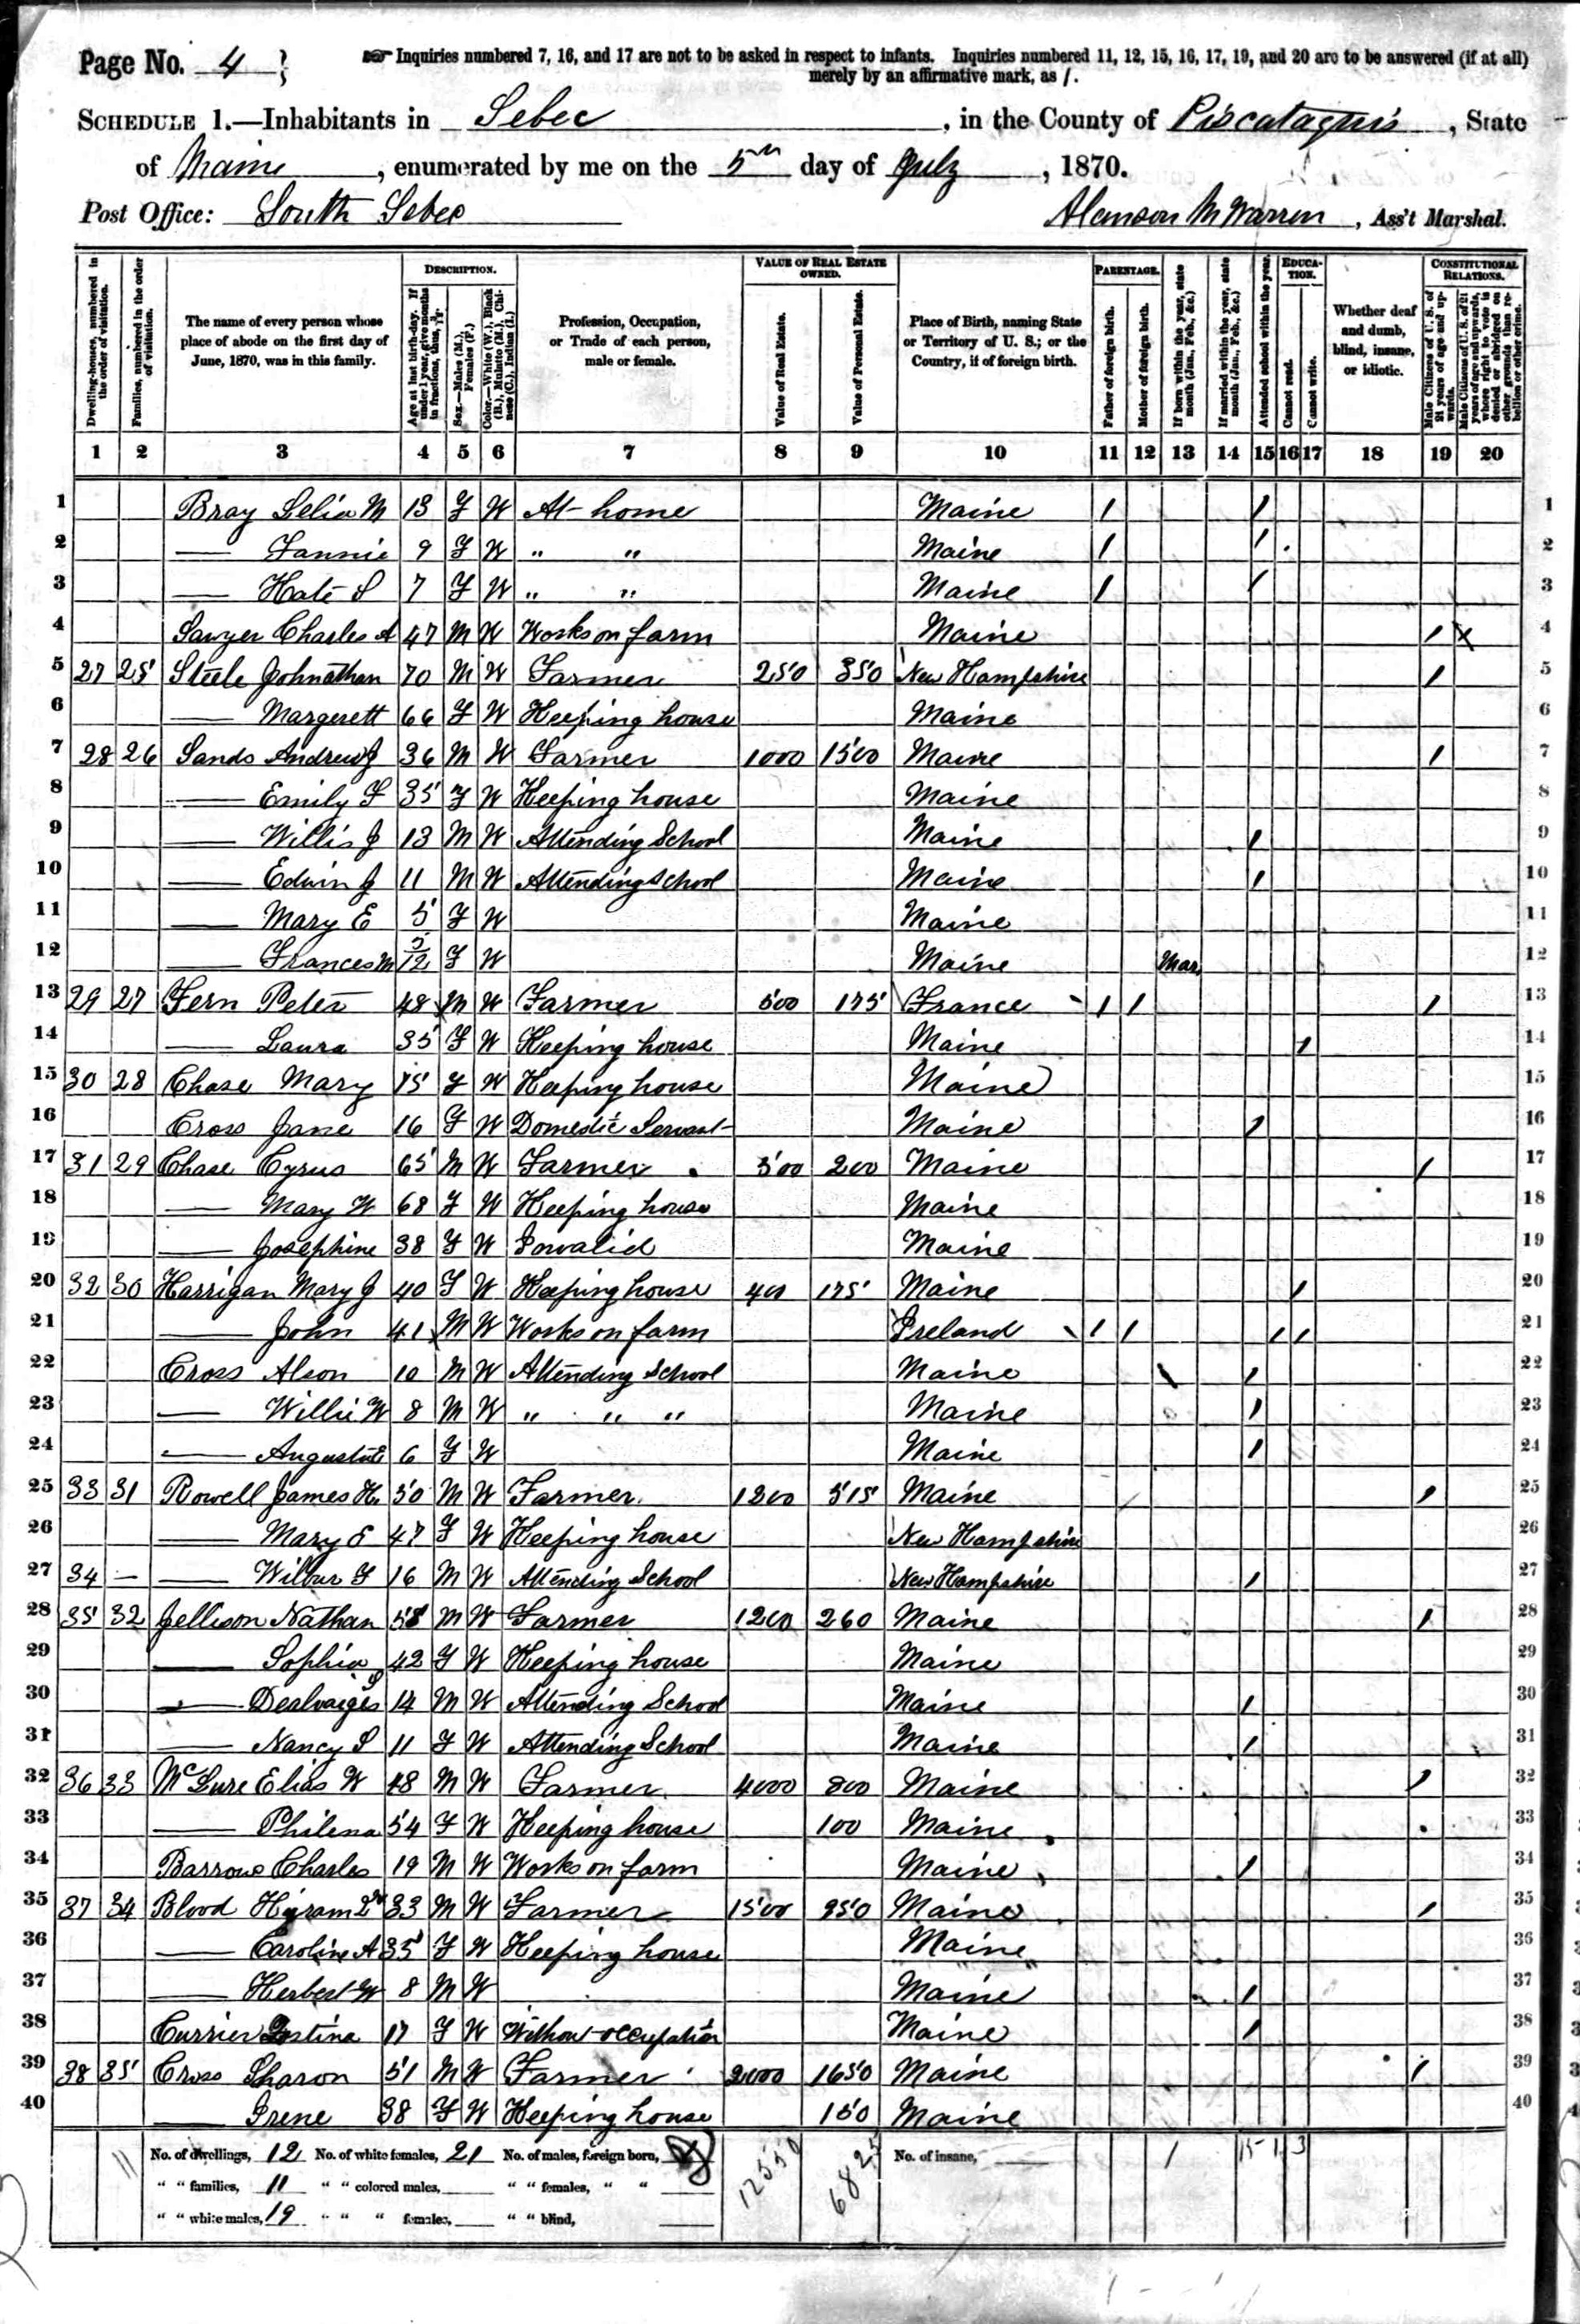 Page No. 4
Inquiries numbered 7, 16, and 17 are not to be asked in respect to infants. Inquiries numbered 11, 12, 15, 16, 17, 19, and 20 are to be answered (if at all)
merely by an affirmative mark, as /.
SCHEDULE 1.—Inhabitants in Sebec, in the County of Piscataquis, State
of Maine, enumerated by me on the 5th day of July, 1870.
Post Office: South Sebec
Alanson M Warren, Ass't Marshal.
Dwelling-houses, numbered in the order of visitation.
Families, numbered in the order of visitation.
The name of every person whose place of abode on the first day of June, 1870, was in this family.
DESCRIPTION.
Age at last birth-day. If under 1 year, give months in fractions, thus, 3/12
Sex.—Males (M.), Females (F.)
Color.—White (W.), Black (B.), Mulatto (M.), Chinese (C.), Indian (I.)
Profession, Occupation, or Trade of each person, male or female.
VALUE OF REAL ESTATE OWNED.
Value of Real Estate.
Value of Personal Estate.
Place of Birth, naming State or Territory of U. S.; or the Country, if of foreign birth.
PARENTAGE.
Father of foreign birth.
Mother of foreign birth.
If born within the year, state month (Jan., Feb., &c.)
If married within the year, state month (Jan., Feb., &c.)
Attended school within the year.
EDUCATION.
Cannot read.
Cannot write.
Whether deaf and dumb, blind, insane, or idiotic.
CONSTITUTIONAL RELATIONS.
Male Citizens of U. S. of 21 years of age and upwards.
Male Citizens of U. S. of 21 years of age and upwards, whose right to vote is denied or abridged on other grounds than rebellion or other crime.
1 2 3 4 5 6 7 8 9 10 11 12 13 14 15 16 17 18 19 20
1 Bray Lelia M 13 F W At home Maine / / 1
2 — Fannie 9 F W " " Maine / / 2
3 — Kate S 7 F W " " Maine / / 3
4 Sawyer Charles A 47 M W Works on farm Maine / 4
5 27 25 Steele Johnathan 70 M W Farmer 250 350 New Hampshire / 5
6 — Margerett 66 F W Keeping house Maine 6
7 28 26 Sands Andrew J 36 M W Farmer 1000 1500 Maine / 7
8 — Emily F 35 F W Keeping house Maine 8
9 — Willis J 13 M W Attending School Maine / 9
10 — Edwin J 11 M W Attending School Maine / 10
11 — Mary E 5 F W Maine 11
12 — Frances M 3/12 F W Maine Mar 12
13 29 27 Fern Peter 48 M W Farmer 500 175 France / / / 13
14 — Laura 35 F W Keeping house Maine / 14
15 30 28 Chase Mary 75 F W Keeping house Maine 15
16 Cross Jane 16 F W Domestic Servant Maine / 16
17 31 29 Chase Cyrus 65 M W Farmer 500 200 Maine / 17
18 — Mary W 68 F W Keeping house Maine 18
19 — Josephine 38 F W Invalid Maine 19
20 32 30 Harrigan Mary J 40 F W Keeping house 400 175 Maine / 20
21 — John 41 M W Works on farm Ireland / / / / 21
22 Cross Alson 10 M W Attending School Maine / 22
23 — Willie W 8 M W " " " Maine / 23
24 — 6 F W Maine / 24
25 33 31 Rowell James H 50 M W Farmer 1200 515 Maine / 25
26 — Mary E 47 F W Keeping house New Hampshire 26
27 34 — — Wilbur F 16 M W Attending School New Hampshire / 27
28 35 32 Jellison Nathan 58 M W Farmer 1200 260 Maine / 28
29 — Sophia 42 F W Keeping house Maine 29
30 — 14 M W Attending School Maine / 30
31 — Nancy S 11 F W Attending School Maine / 31
32 36 33 Elias W 48 M W Farmer 4000 800 Maine / 32
33 — Philena 54 F W Keeping house 100 Maine 33
34 Barrows Charles 19 M W Works on farm Maine / 34
35 37 34 Blood Hiram 2nd 33 M W Farmer 1500 950 Maine / 35
36 — Caroline A 35 F W Keeping house Maine 36
37 — Herbert W 8 M W Maine / 37
38 Currier 17 F W Without occupation Maine / 38
39 38 35 Cross Sharon 51 M W Farmer 2000 1650 Maine / 39
40 — Irene 38 F W Keeping house 150 Maine 40
11 No. of dwellings, 12 No. of white females, 21 No. of males, foreign born, 12550 6825 No. of insane, 1 15 1 3
" " families, 11 " " colored males, " " females, " "
" " white males, 19 " " " females, " " blind,